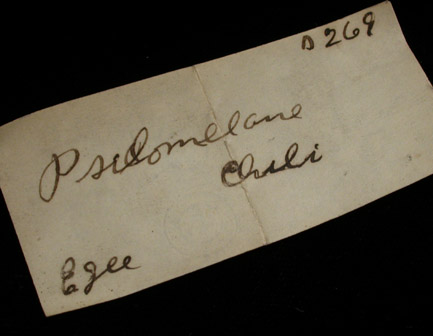 D269
Psilomelane
Chili
Egee